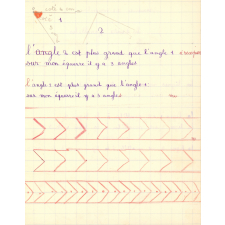 1
2
l'angle 2 est plus grand que l'angle 1
sur mon équerre il y a 3 angles.
l'angle 2 est plus grand que l'angle 1
sur mon équerre il y a 3 angles.